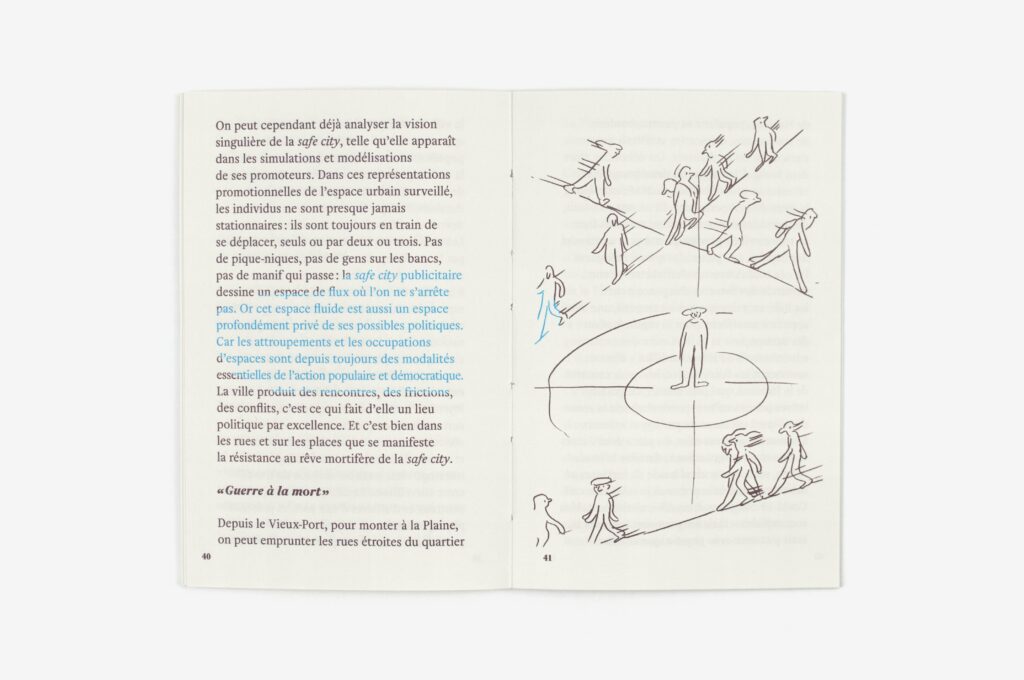 On peut cependant déjà analyser la vision
singulière de la safe city, telle qu'elle apparaît
dans les simulations et modélisations
de ses promoteurs. Dans ces représentations
promotionnelles de l'espace urbain surveillé,
les individus ne sont presque jamais
stationnaires : ils sont toujours en train de
se déplacer, seuls ou par deux ou trois. Pas
de pique-niques, pas de gens sur les bancs,
pas de manif qui passe : la safe city publicitaire
dessine un espace de flux où l'on ne s'arrête
pas. Or cet espace fluide est aussi un espace
profondément privé de ses possibles politiques.
Car les attroupements et les occupations
d'espaces sont depuis toujours des modalités
essentielles de l'action populaire et démocratique.
La ville produit des rencontres, des frictions,
des conflits, c'est ce qui fait d'elle un lieu
politique par excellence. Et c'est bien dans
les rues et sur les places que se manifeste
la résistance au rêve mortifère de la safe city.
« Guerre à la mort »
Depuis le Vieux-Port, pour monter à la Plaine,
on peut emprunter les rues étroites du quartier
40
41